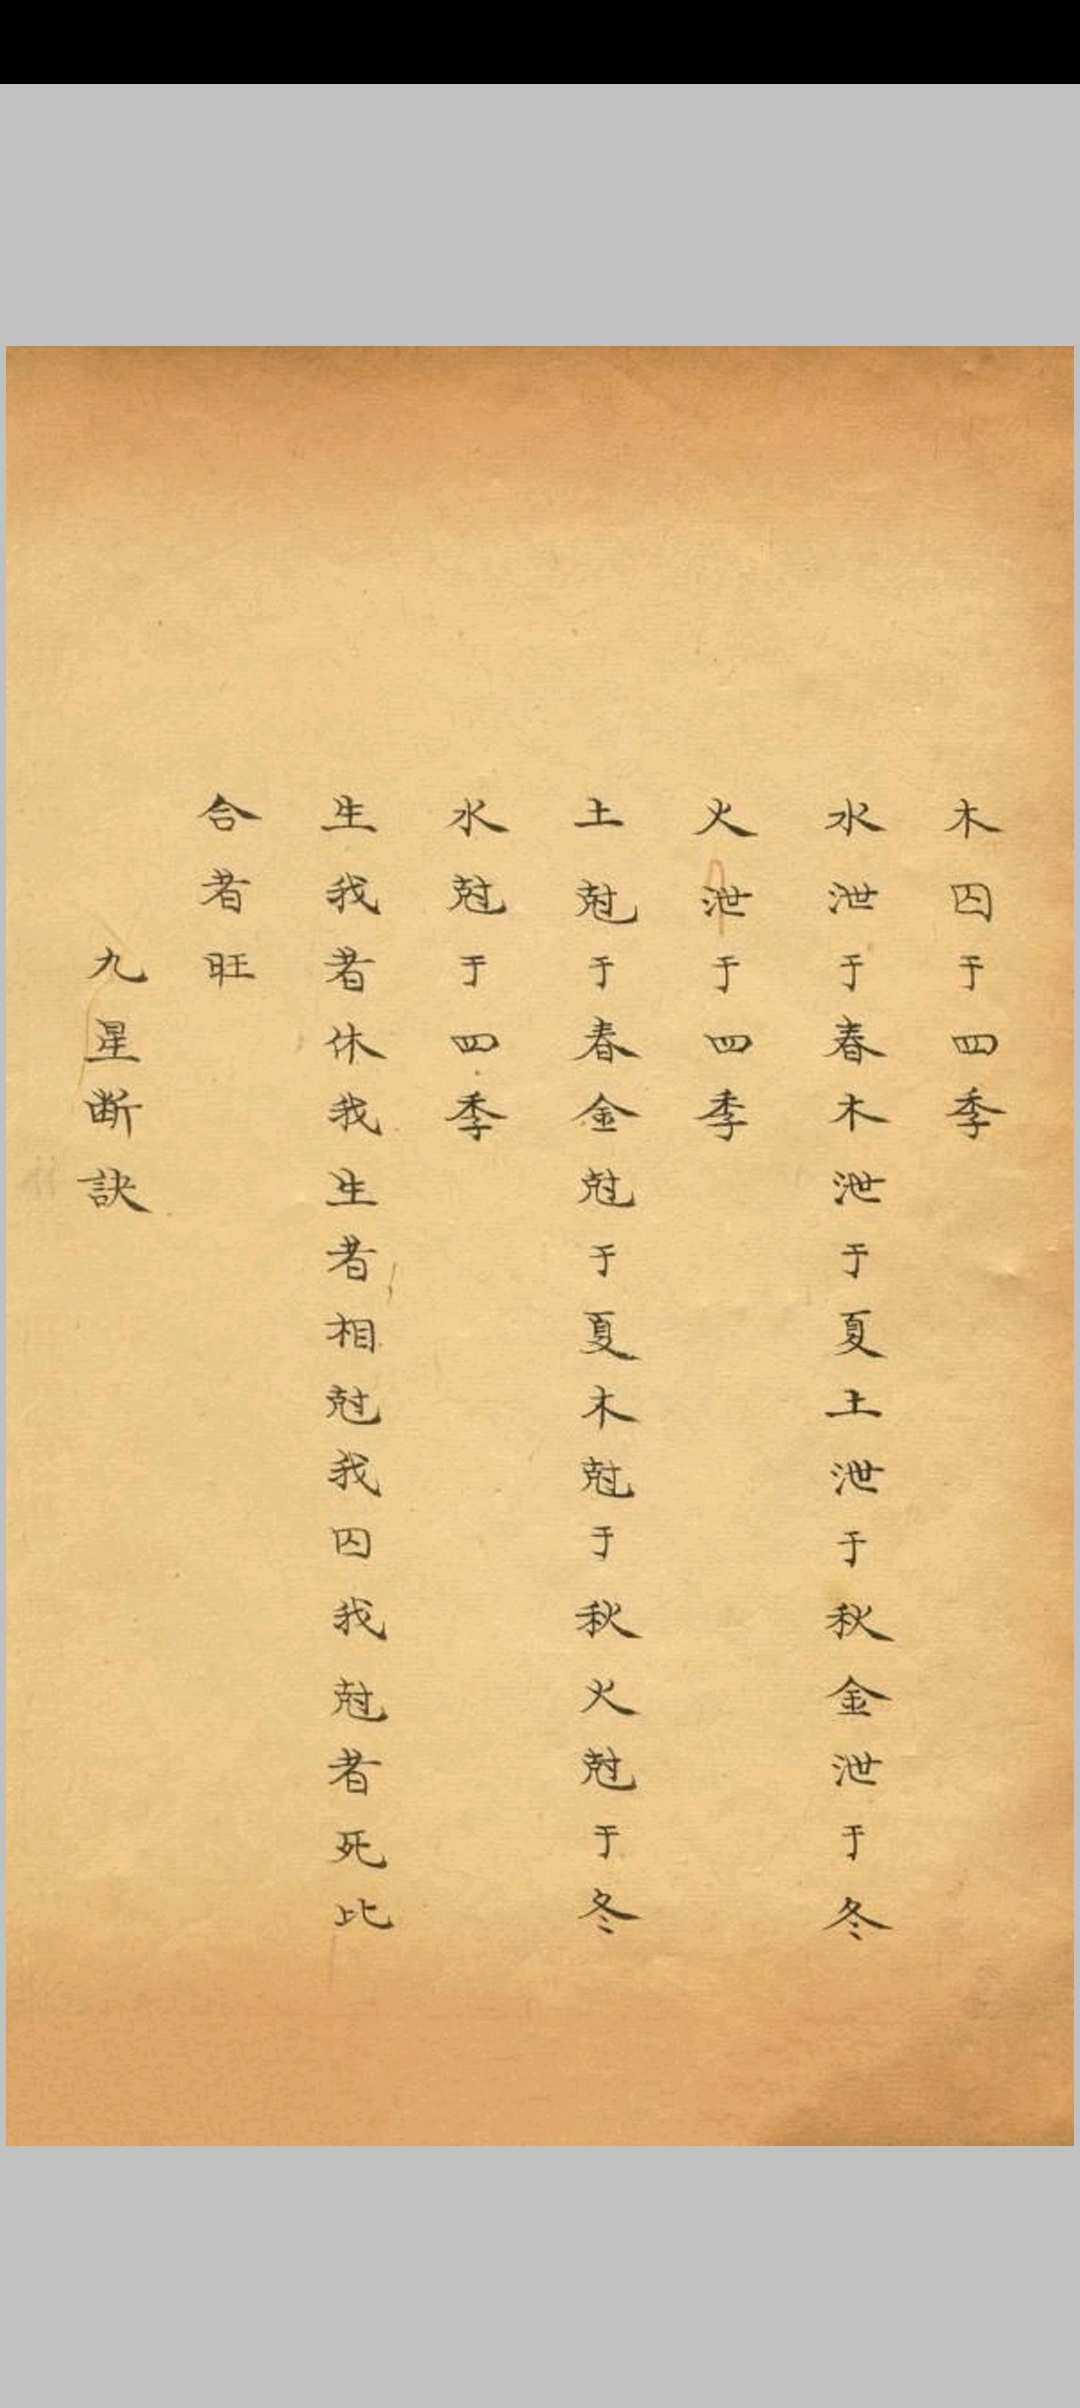 木囚于四季
水泄于春木泄于夏土泄于秋金泄于冬
火泄于四季
土尅于春金尅于夏木尅于秋火尅于冬
水尅于四季
生我者休我生者相尅我囚我尅者死比
合者旺
九星断訣